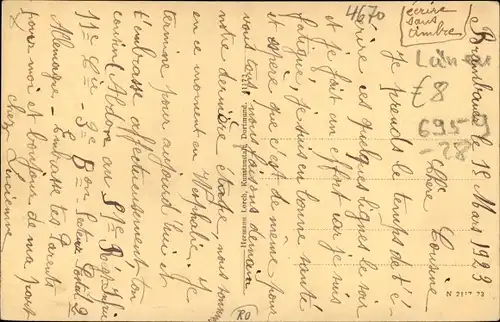 écrire
sans
timbre
4670
£8
6959
-28
Brambauer le Mars 1923
Chère Cousine
Je prends le temps de t'é-
crire ces quelques lignes le soir
et je fait un effort car je suis
fatigué, je suis en bonne santé
et espère que c'est de même pour
vous tous, nous faisons demain
notre dernière étape, nous sommes
en ce moment en Westphalie. Je
termine pour aujourd'hui et
t'embrasse affectueusement ton
cousin au Régt Infie
11e Cie - 3e Bon - Secteur Postal 2
Allemagne - Embrasse tes Parents
pour moi et bonjour de ma part
chez Lucienne
Hermann Lorch, Kunstanstalt, Dortmund.